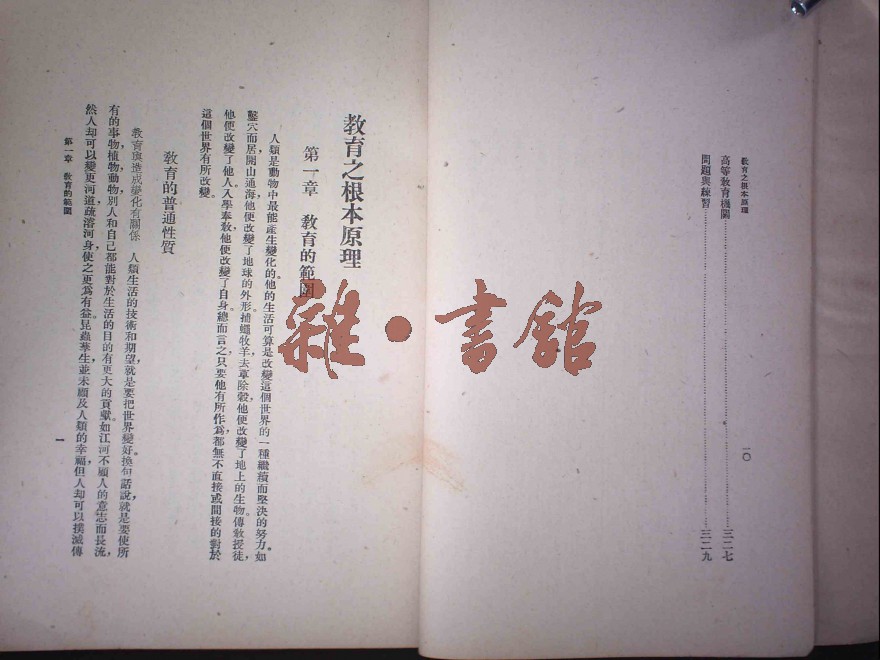 教育之根本原理
高等教育機關……三二七
問題與練習……三二九
一〇
教育之根本原理
第一章　教育的範圍
人類是動物中最能產生變化的。他的生活可算是改變這個世界的一種繼續而堅決的努力。如
鑿穴而居，開山通海，他便改變了地球的外形。捕蠅牧羊，去草除穀，他便改變了地上的生物。傳教授徒，
他便改變了他人。入學奉教，他便改變了自身。總而言之，只要他有所作為，都無不直接或間接的對於
這個世界有所改變。
教育的普通性質
教育與造成變化有關係　人類生活的技術和期望，就是要把世界變好。換句話說，就是要使所
有的事物，植物，動物，別人和自己都能對於生活的目的有更大的貢獻。如江河不顧人的意志而長流，
然人卻可以變更河道，疏濬河身，使之更爲有益。昆蟲孳生，並未顧及人類的幸福，但人卻可以撲滅傳
第一章　教育的範圍
一
雜·書館